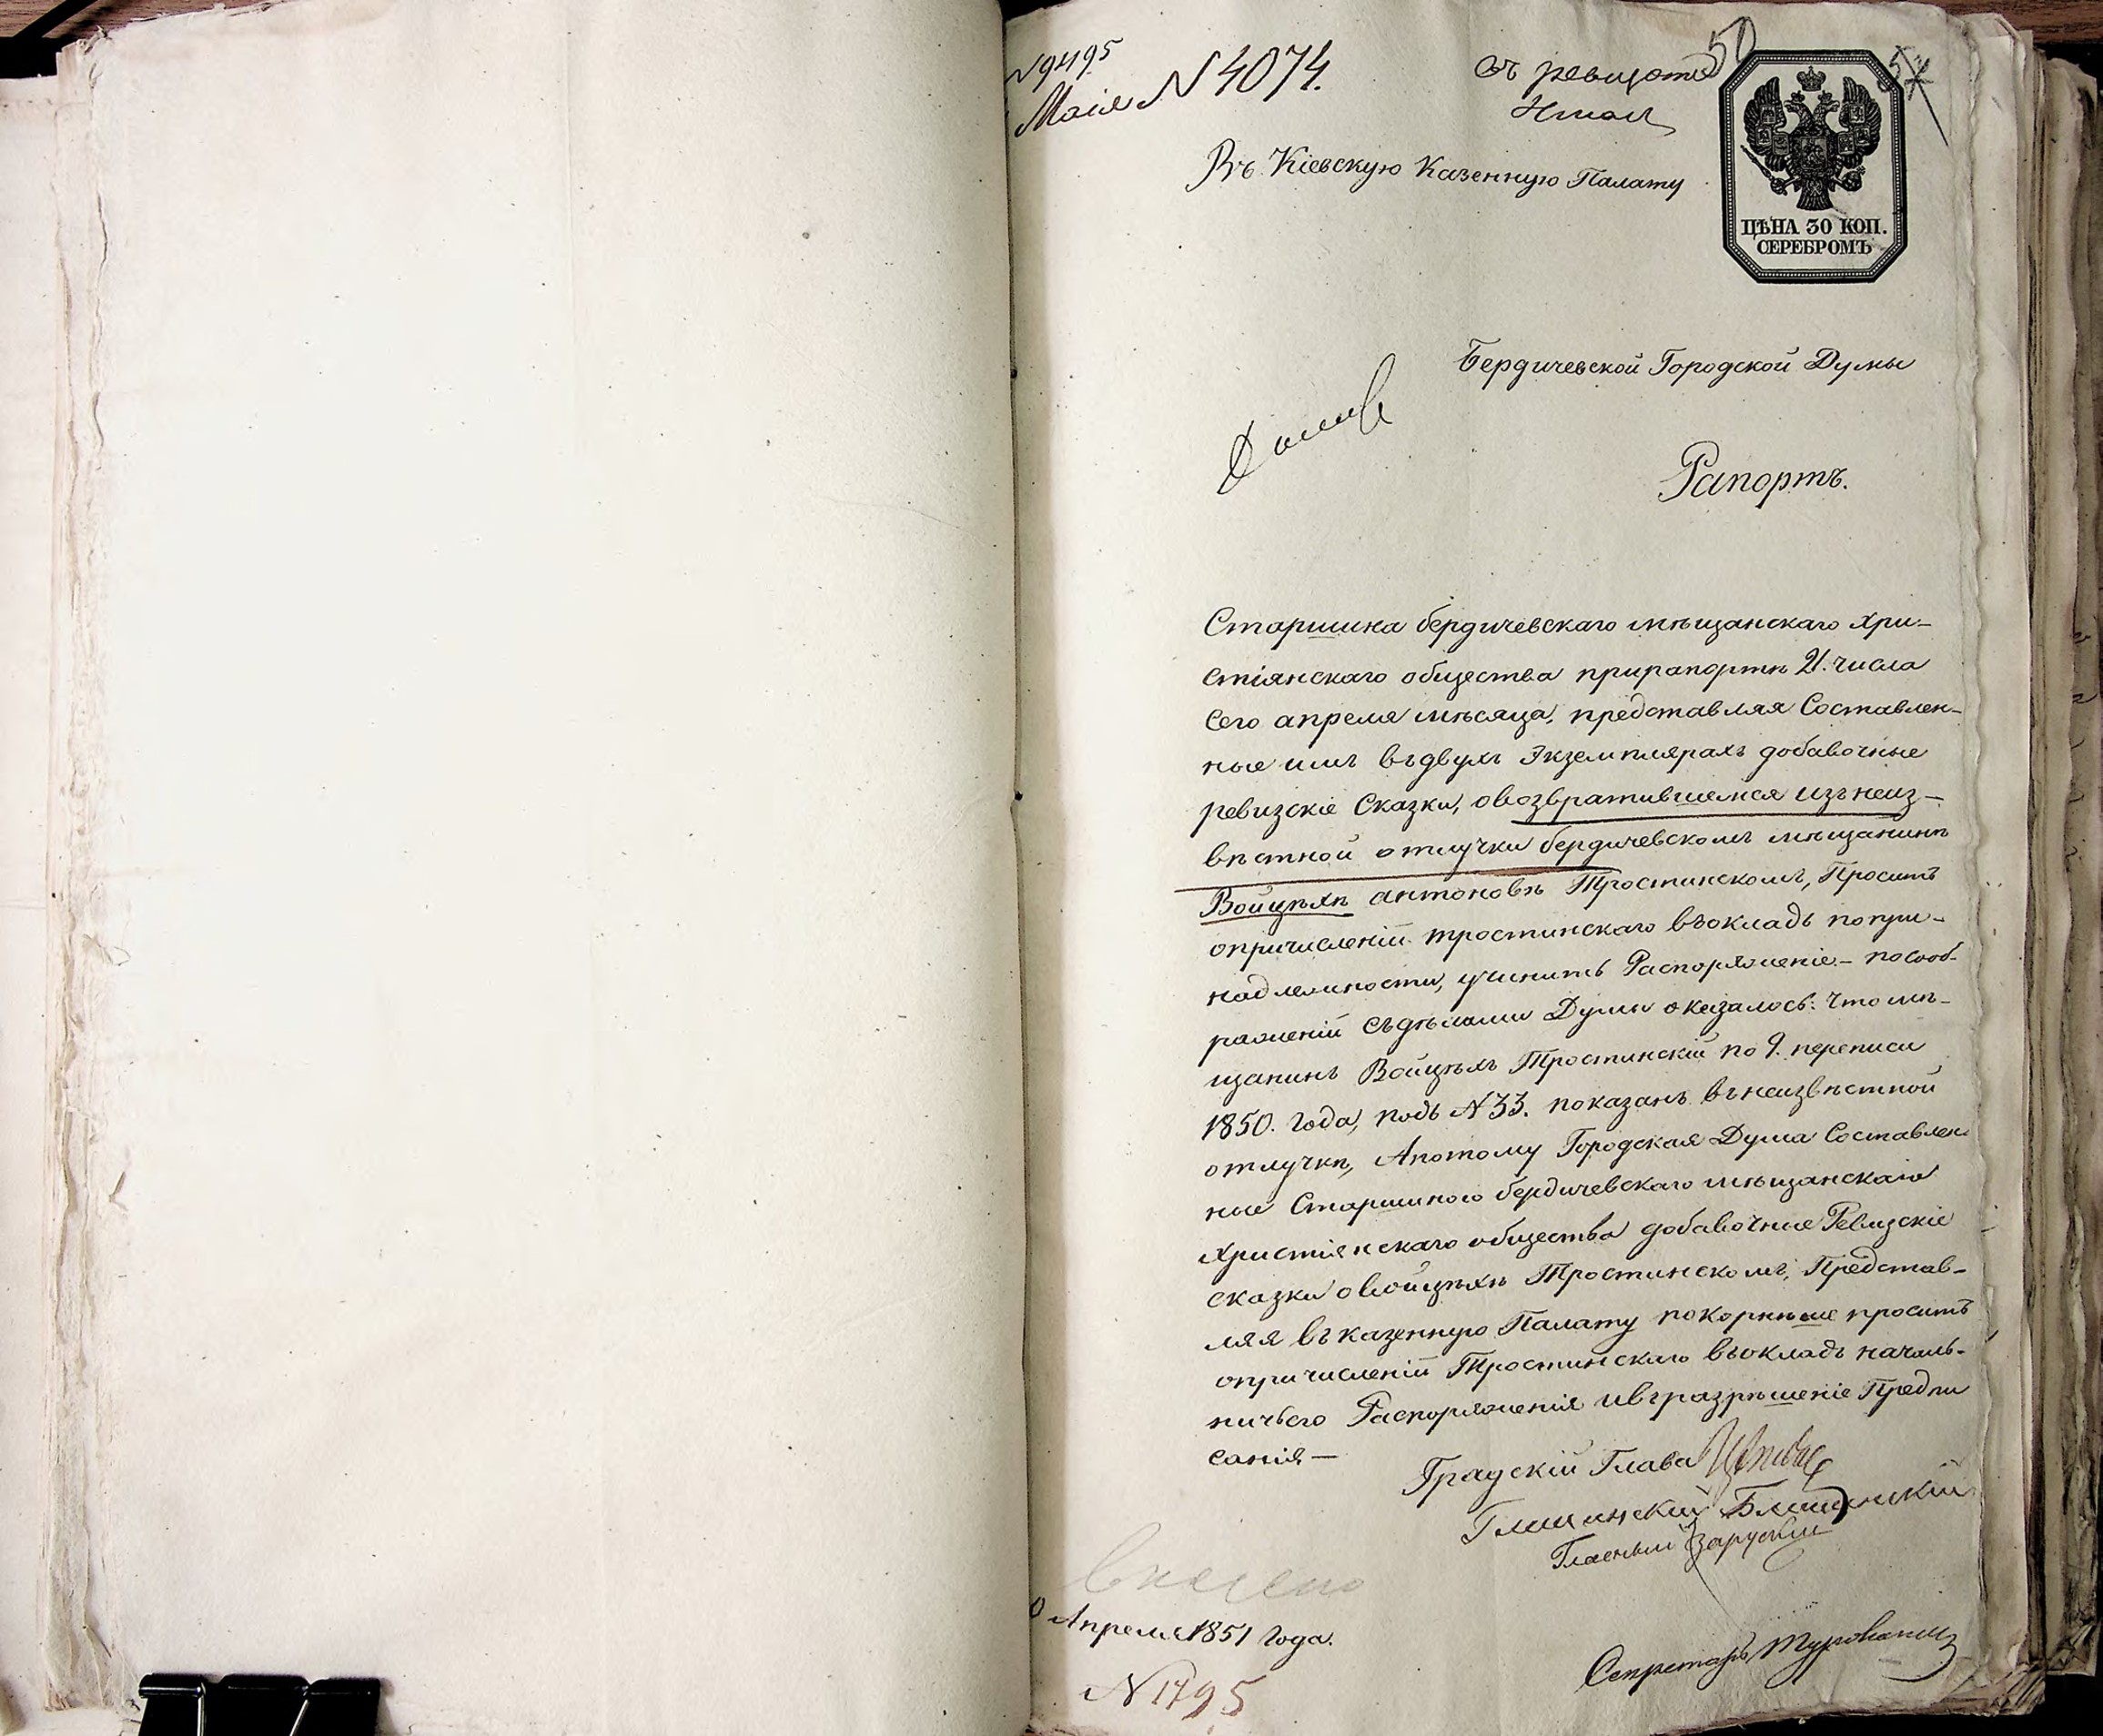 N 9495
Маія N 4074.
50
Въ Кіевскую Казенную Палату
ЦѢНА 30 КОП.
СЕРЕБРОМЪ
Бердичевской Городской Думы
Рапортъ.
Старшина бердичевскаго мѣщанскаго хри-
стіянскаго общества прирапортѣ 21. числа
сего апреля мѣсяца, представляя Составлен-
ные имъ въдвухъ Экземплярахъ добавочные
ревизскіе Сказки, овозвратившемся изънеиз-
вѣстной отлучки бердичевскомъ мѣщанинѣ
Войцѣхѣ антоновѣ Тростинскомъ, Проситъ
опричисленіи тростинскаго въокладъ попри-
надлежности, учинить Распоряженіе - посооб-
раженіи съдѣлами Думы оказалось: что мѣ-
щанинъ Войцѣхъ Тростинскій по 9. переписи
1850. года, подъ N 33. показанъ вънеизвѣстной
отлучкѣ, Апотому Городская Дума Составлен-
ные Старшиною бердичевскаго мѣщанскаго
христіянскаго общества добавочные Ревизскіе
сказки овойцѣхѣ Тростинскомъ, Представ-
ляя въказенную Палату покорнѣше проситъ
опричисленіи Тростинскаго въокладъ началь-
ничьего Распоряженія ивъразрѣшеніе Предпи
санія —
Градскій Глава
Гласный Заруский
Внесено
Апреля 1851 года.
Секретарь
N 1795